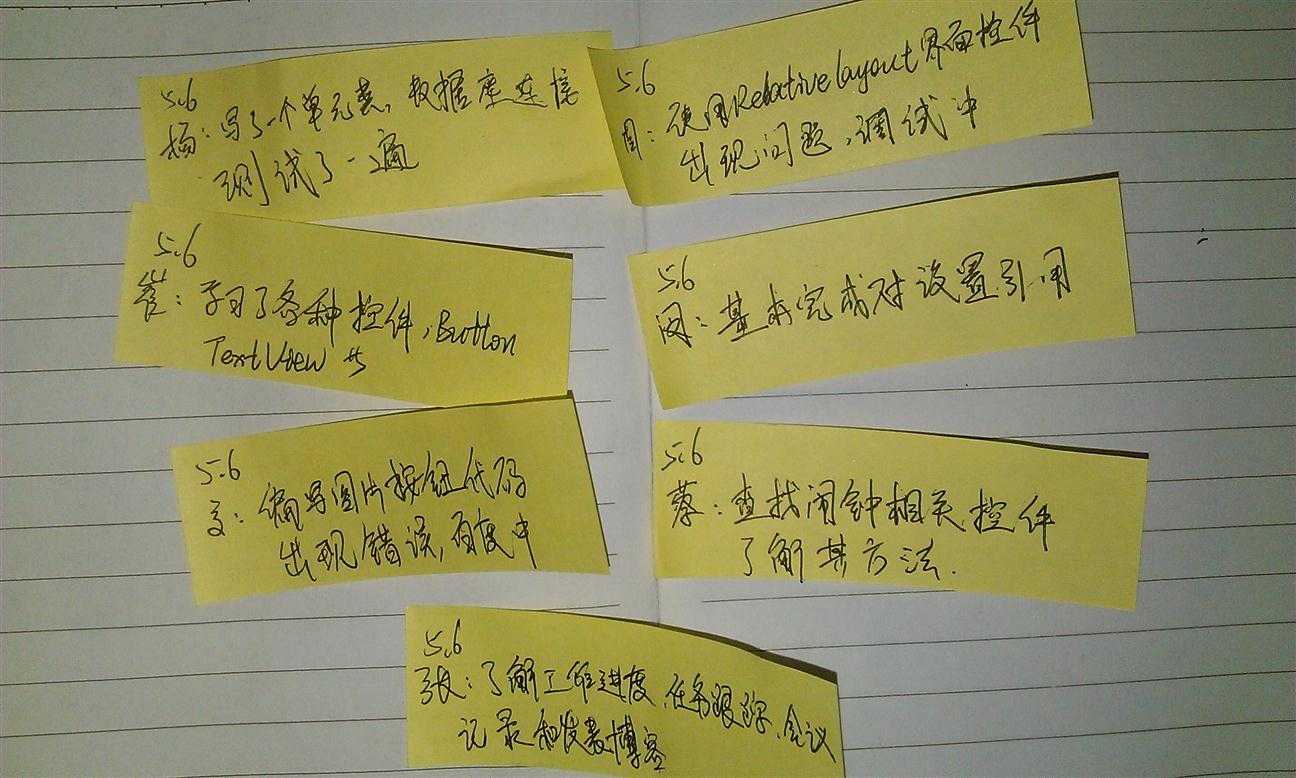 5.6
杨：写了一个单元类，数据库连接
测试了一遍
5.6
周：使用Relative layout界面控件
出现问题，调试中
5.6
崔：学习了各种控件，Button
TextView 等
5.6
闵：基本完成对设置引用
5.6
李：编写图片按钮代码
出现错误，百度中
5.6
蔡：查找闹钟相关控件
了解其方法.
5.6
张：了解工作进度、任务跟踪、会议
记录和发表博客